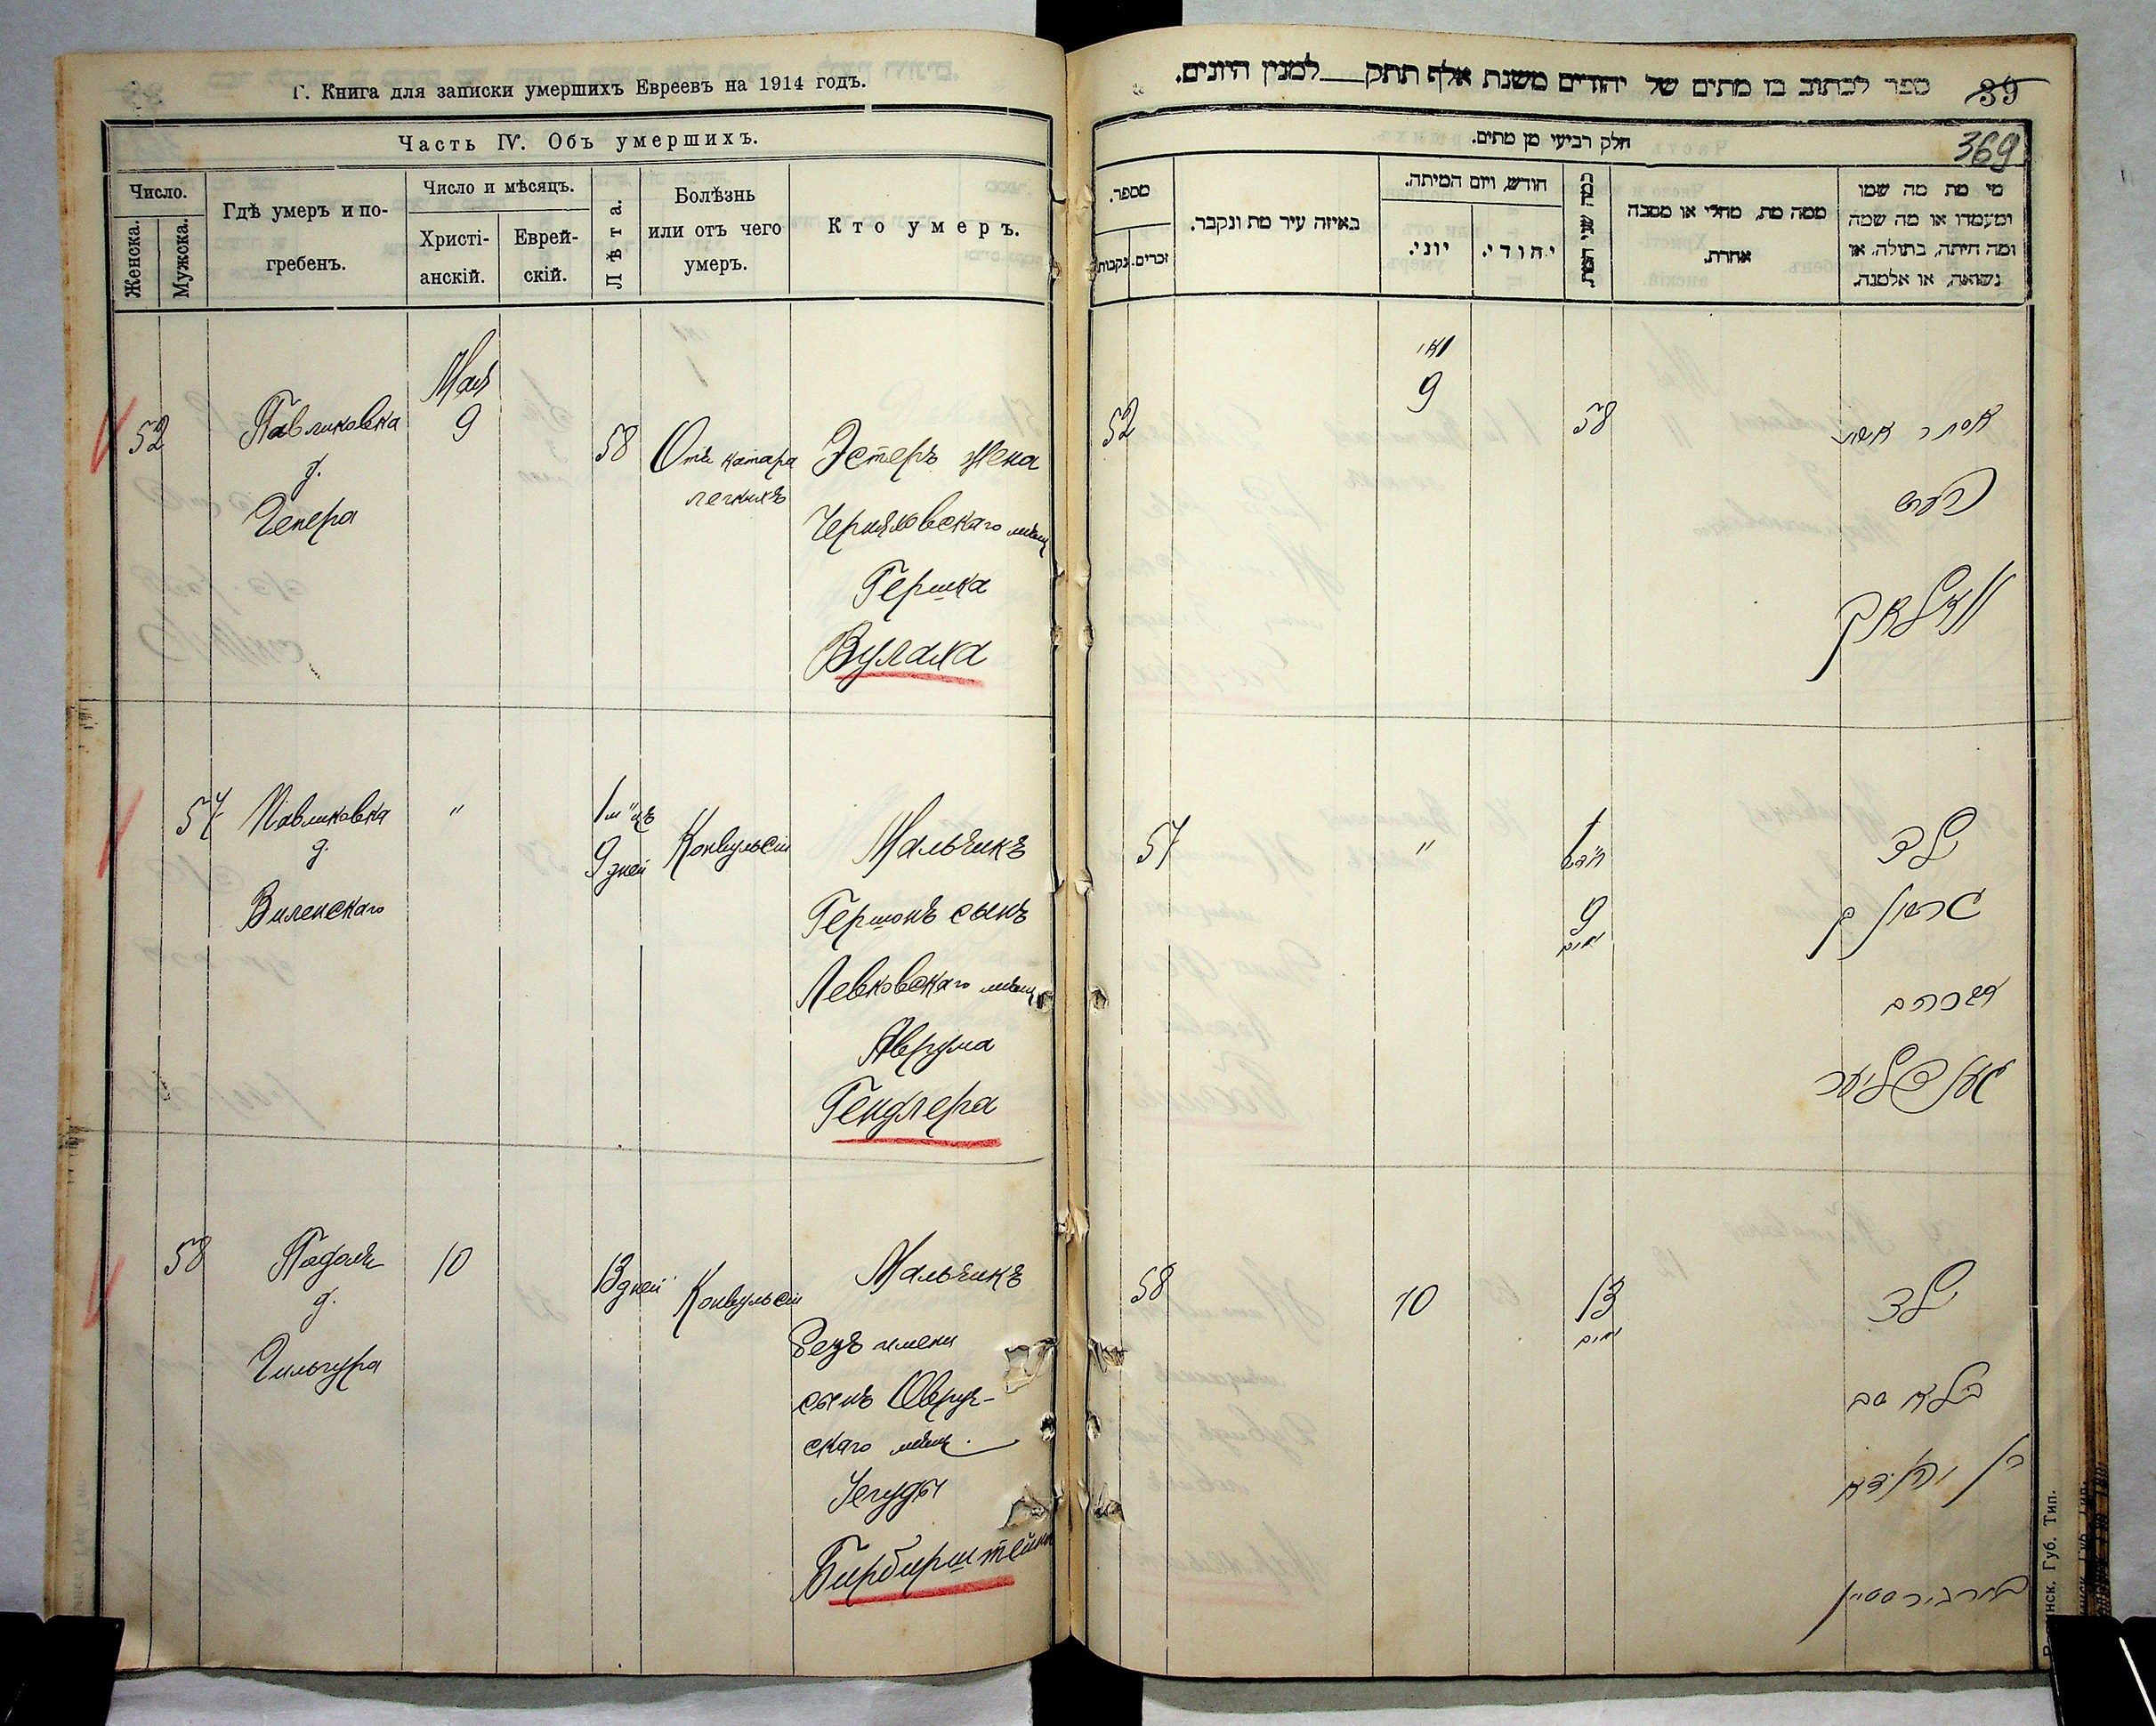 Г. Книга для записки умершихъ Евреевъ на 1914 годъ.
Часть IV. Объ умершихъ.
Число.
Женска.
Мужска.
Гдѣ умеръ и по-
гребенъ.
Число и мѣсяцъ.
Христі-
анскій.
Еврей-
скій.
Лѣта.
Болѣзнь
или отъ чего
умеръ.
Кто умеръ.
52
Павликовка
д.
Чепера
Мая
9
58
Отъ катара
легкихъ
Эстеръ жена
Черняховскаго мѣщ
Гершка
Вулаха
57
Павликовка
д.
Виленскаго
"
1 м"цъ
9 дней
Конвульсіи
Мальчикъ
Гершонъ сынъ
Левковскаго мѣщ
Аврума
Гендлера
58
Подолъ
д.
10
13 дней
Конвульсіи
Мальчикъ
безъ имени
сынъ Овруч-
скаго мѣщ.
Іегуды
Бирбирштейна
ספר לכתוב בו מתים של יהודים משנת אלף תתק___למנין היונים.
39
369
חלק רביעי מן מתים.
מספר.
נקבות.
זכרים.
באיזה עיר מת ונקבר.
חודש, ויום המיתה.
יוני.
יהודי.
כמה שני המת.
ממה מת, מחלי או מסבה
אחרת.
מי מת מה שמו
ומעמדו או מה שמה
ומה היתה, בתולה, או
נשואה, או אלמנה.
52
מאי
9
58
אסתר אשת
הערש
וואלאך
57
"
1
חדש
9
ימים
ילד
גרשון בן
אברהם
הענדליער
58
10
13
ימים
ילד
בלא שם
בן יהודא
בירבירשטיין
Губ. Тип.